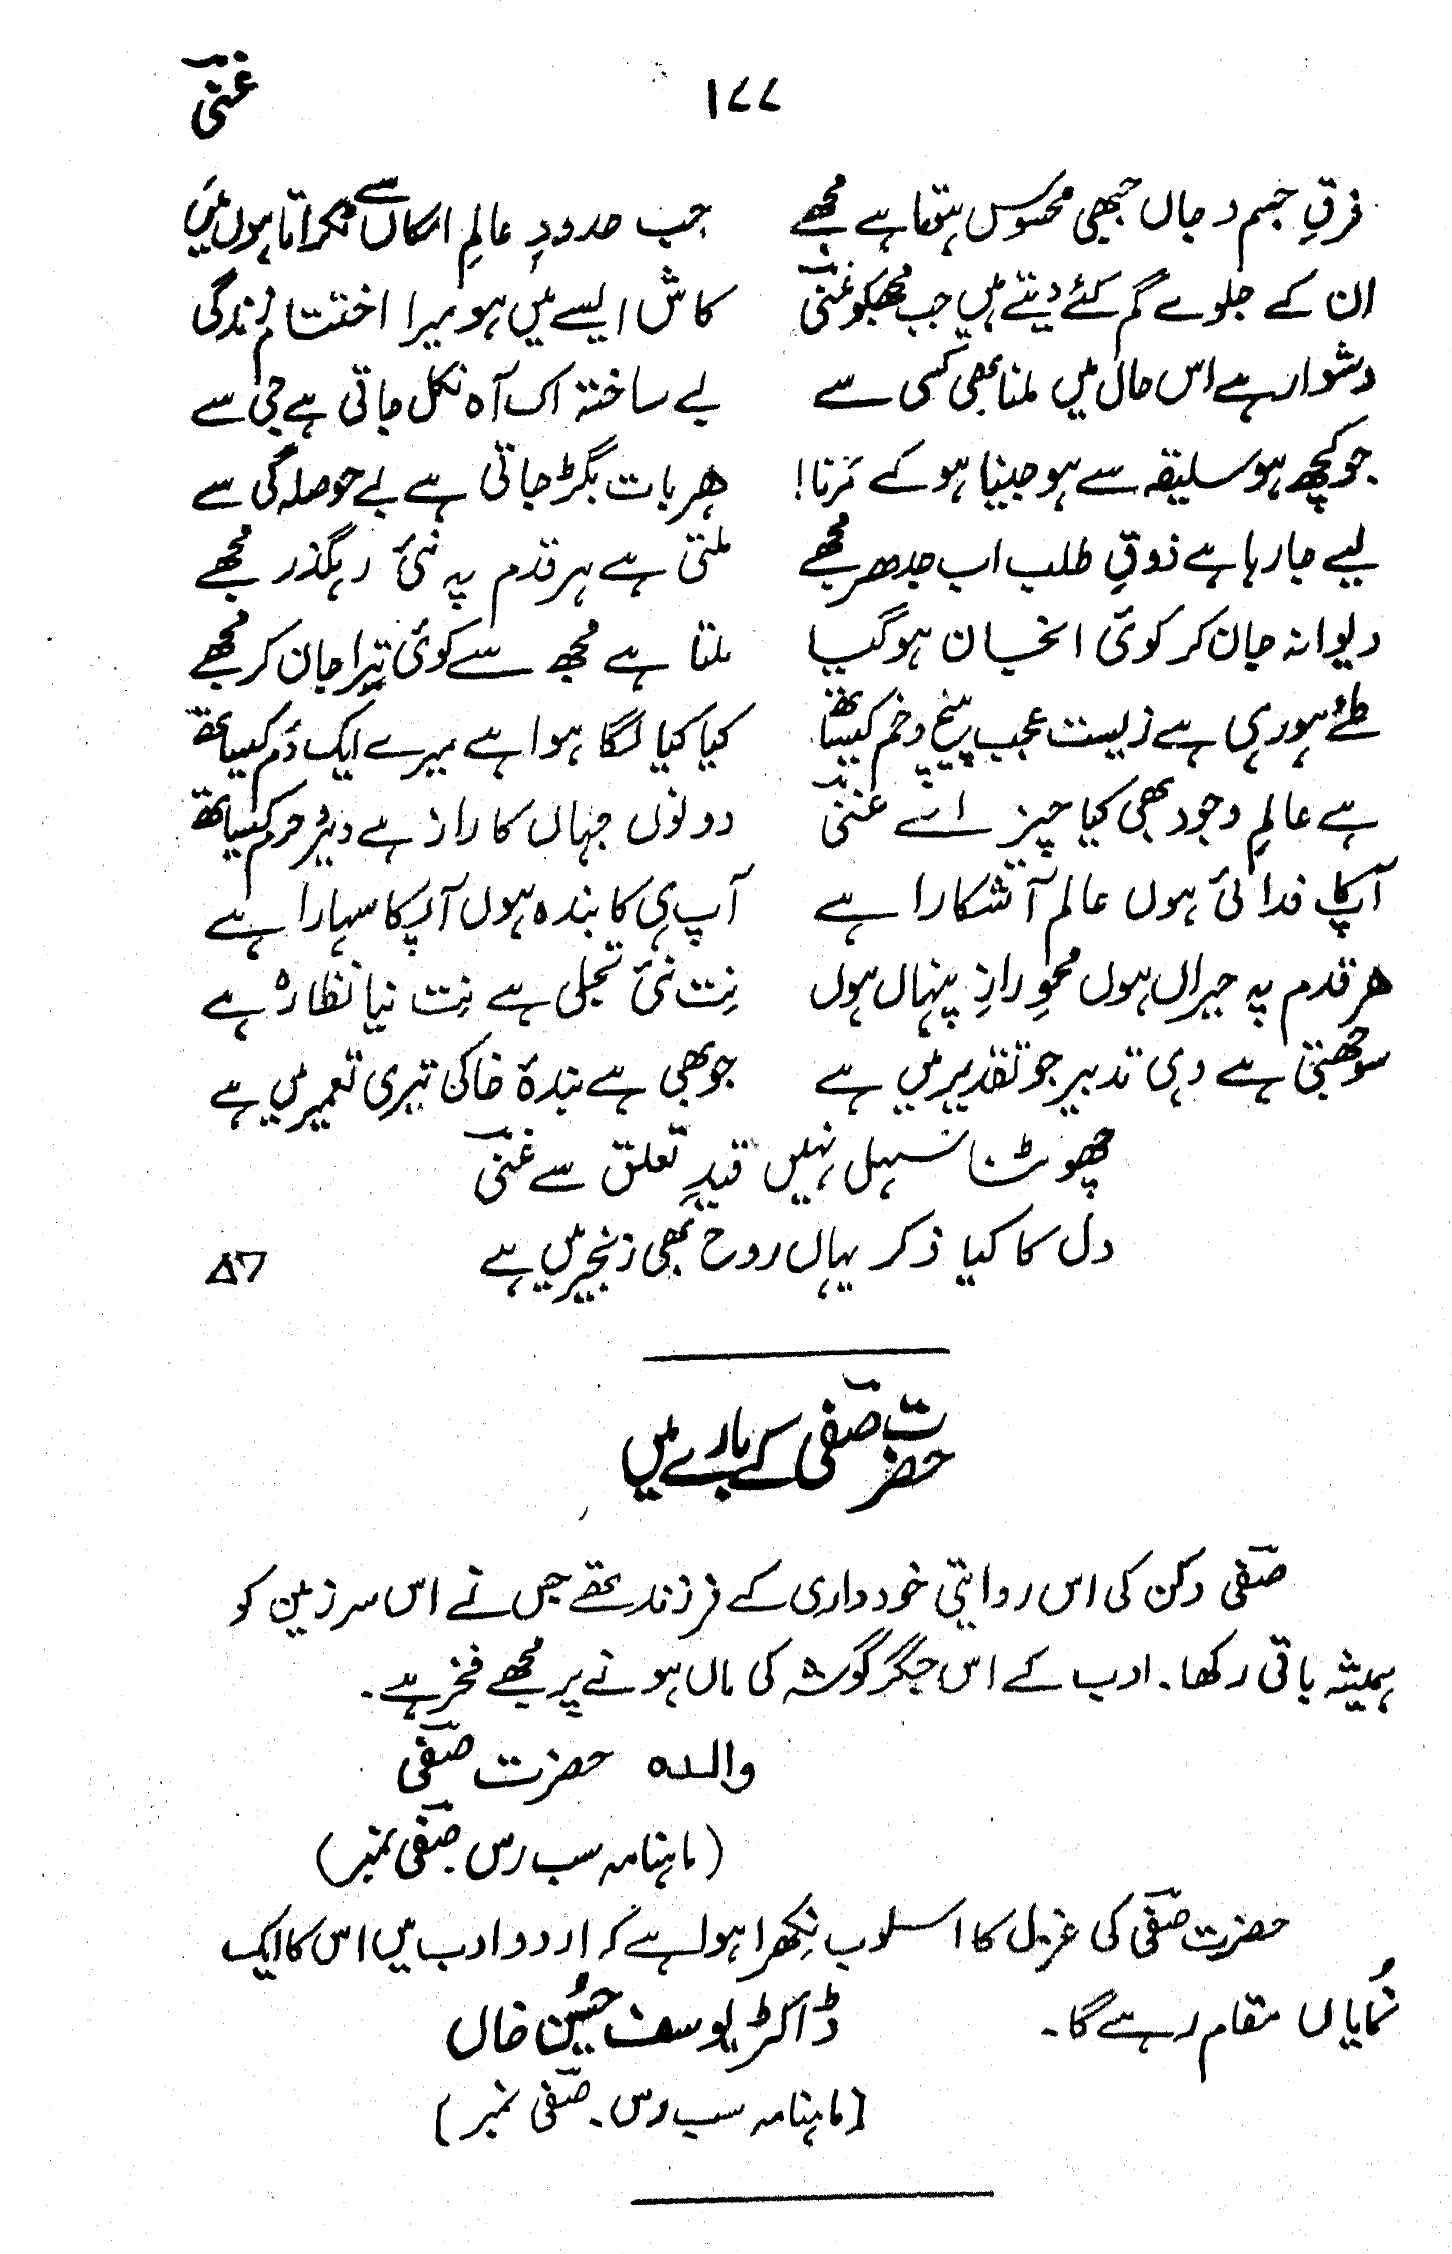 غنیؔ
۱۷۷
فرقِ جسم و جاں جبھی محسوس ہوتا ہے مجھے جب حدودِ عالمِ امکاں سے ٹکراتا ہوں میں
ان کے جلوے گم کئے دیتے ہیں جب مجھکو غنیؔ کاش ایسے میں ہو میرا اختتامِ زندگی
دشوار ہے اس حال میں ملنا بھی کسی سے بے ساختہ اک آہ نکل جاتی ہے جی سے
جو کچھ ہو سلیقہ سے ہو جینا ہو کے مَرنا! ہر بات بگڑ جاتی ہے بے حوصلہ گی سے
لیے جا رہا ہے ذوقِ طلب اب جدھر مجھے ملتی ہے ہر قدم پہ نئی رہگذر مجھے
دیوانہ جان کر کوئی انجان ہوگیا ملتا ہے مجھ سے کوئی تیرا جان کر مجھے
طئے ہورہی ہے زیست عجب پیچ و خم کیساتھ کیا کیا لگا ہوا ہے میرے ایک دَم کیساتھ
ہے عالمِ وجود بھی کیا چیز اے غنیؔ دونوں جہاں کا راز ہے دیر و حرم کیساتھ
آپکا فدائی ہوں عالم آشکارا ہے آپ ہی کا بندہ ہوں آپ کا سہارا ہے
ہر قدم پہ حیراں ہوں محوِ رازِ پنہاں ہوں نِت نئی تجلی ہے نِت نیا نظارہ ہے
سوجھتی ہے وہی تدبیر جو تقدیر میں ہے جو بھی ہے بندۂ خاکی تیری تعمیر میں ہے
چھوٹنا سہل نہیں قیدِ تعلق سے غنیؔ
دل کا کیا ذکر یہاں روح بھی زنجیر میں ہے
۵۷
حضرت صفیؔ کے بارے میں
صفیؔ دکن کی اس روایتی خودداری کے فرزند تھے جس نے اس سرزمین کو
ہمیشہ باقی رکھا۔ ادب کے اس جگر گوشہ کی ماں ہونے پر مجھے فخر ہے۔
والدہ حضرت صفیؔ
(ماہنامہ سب رس صفیؔ نمبر)
حضرت صفیؔ کی غزل کا اسلوب نِکھرا ہوا ہے کہ اردو ادب میں اس کا ایک
نُمایاں مقام رہے گا۔ ڈاکٹر یوسف حسُین خاں
[ماہنامہ سب رس۔ صفیؔ نمبر]